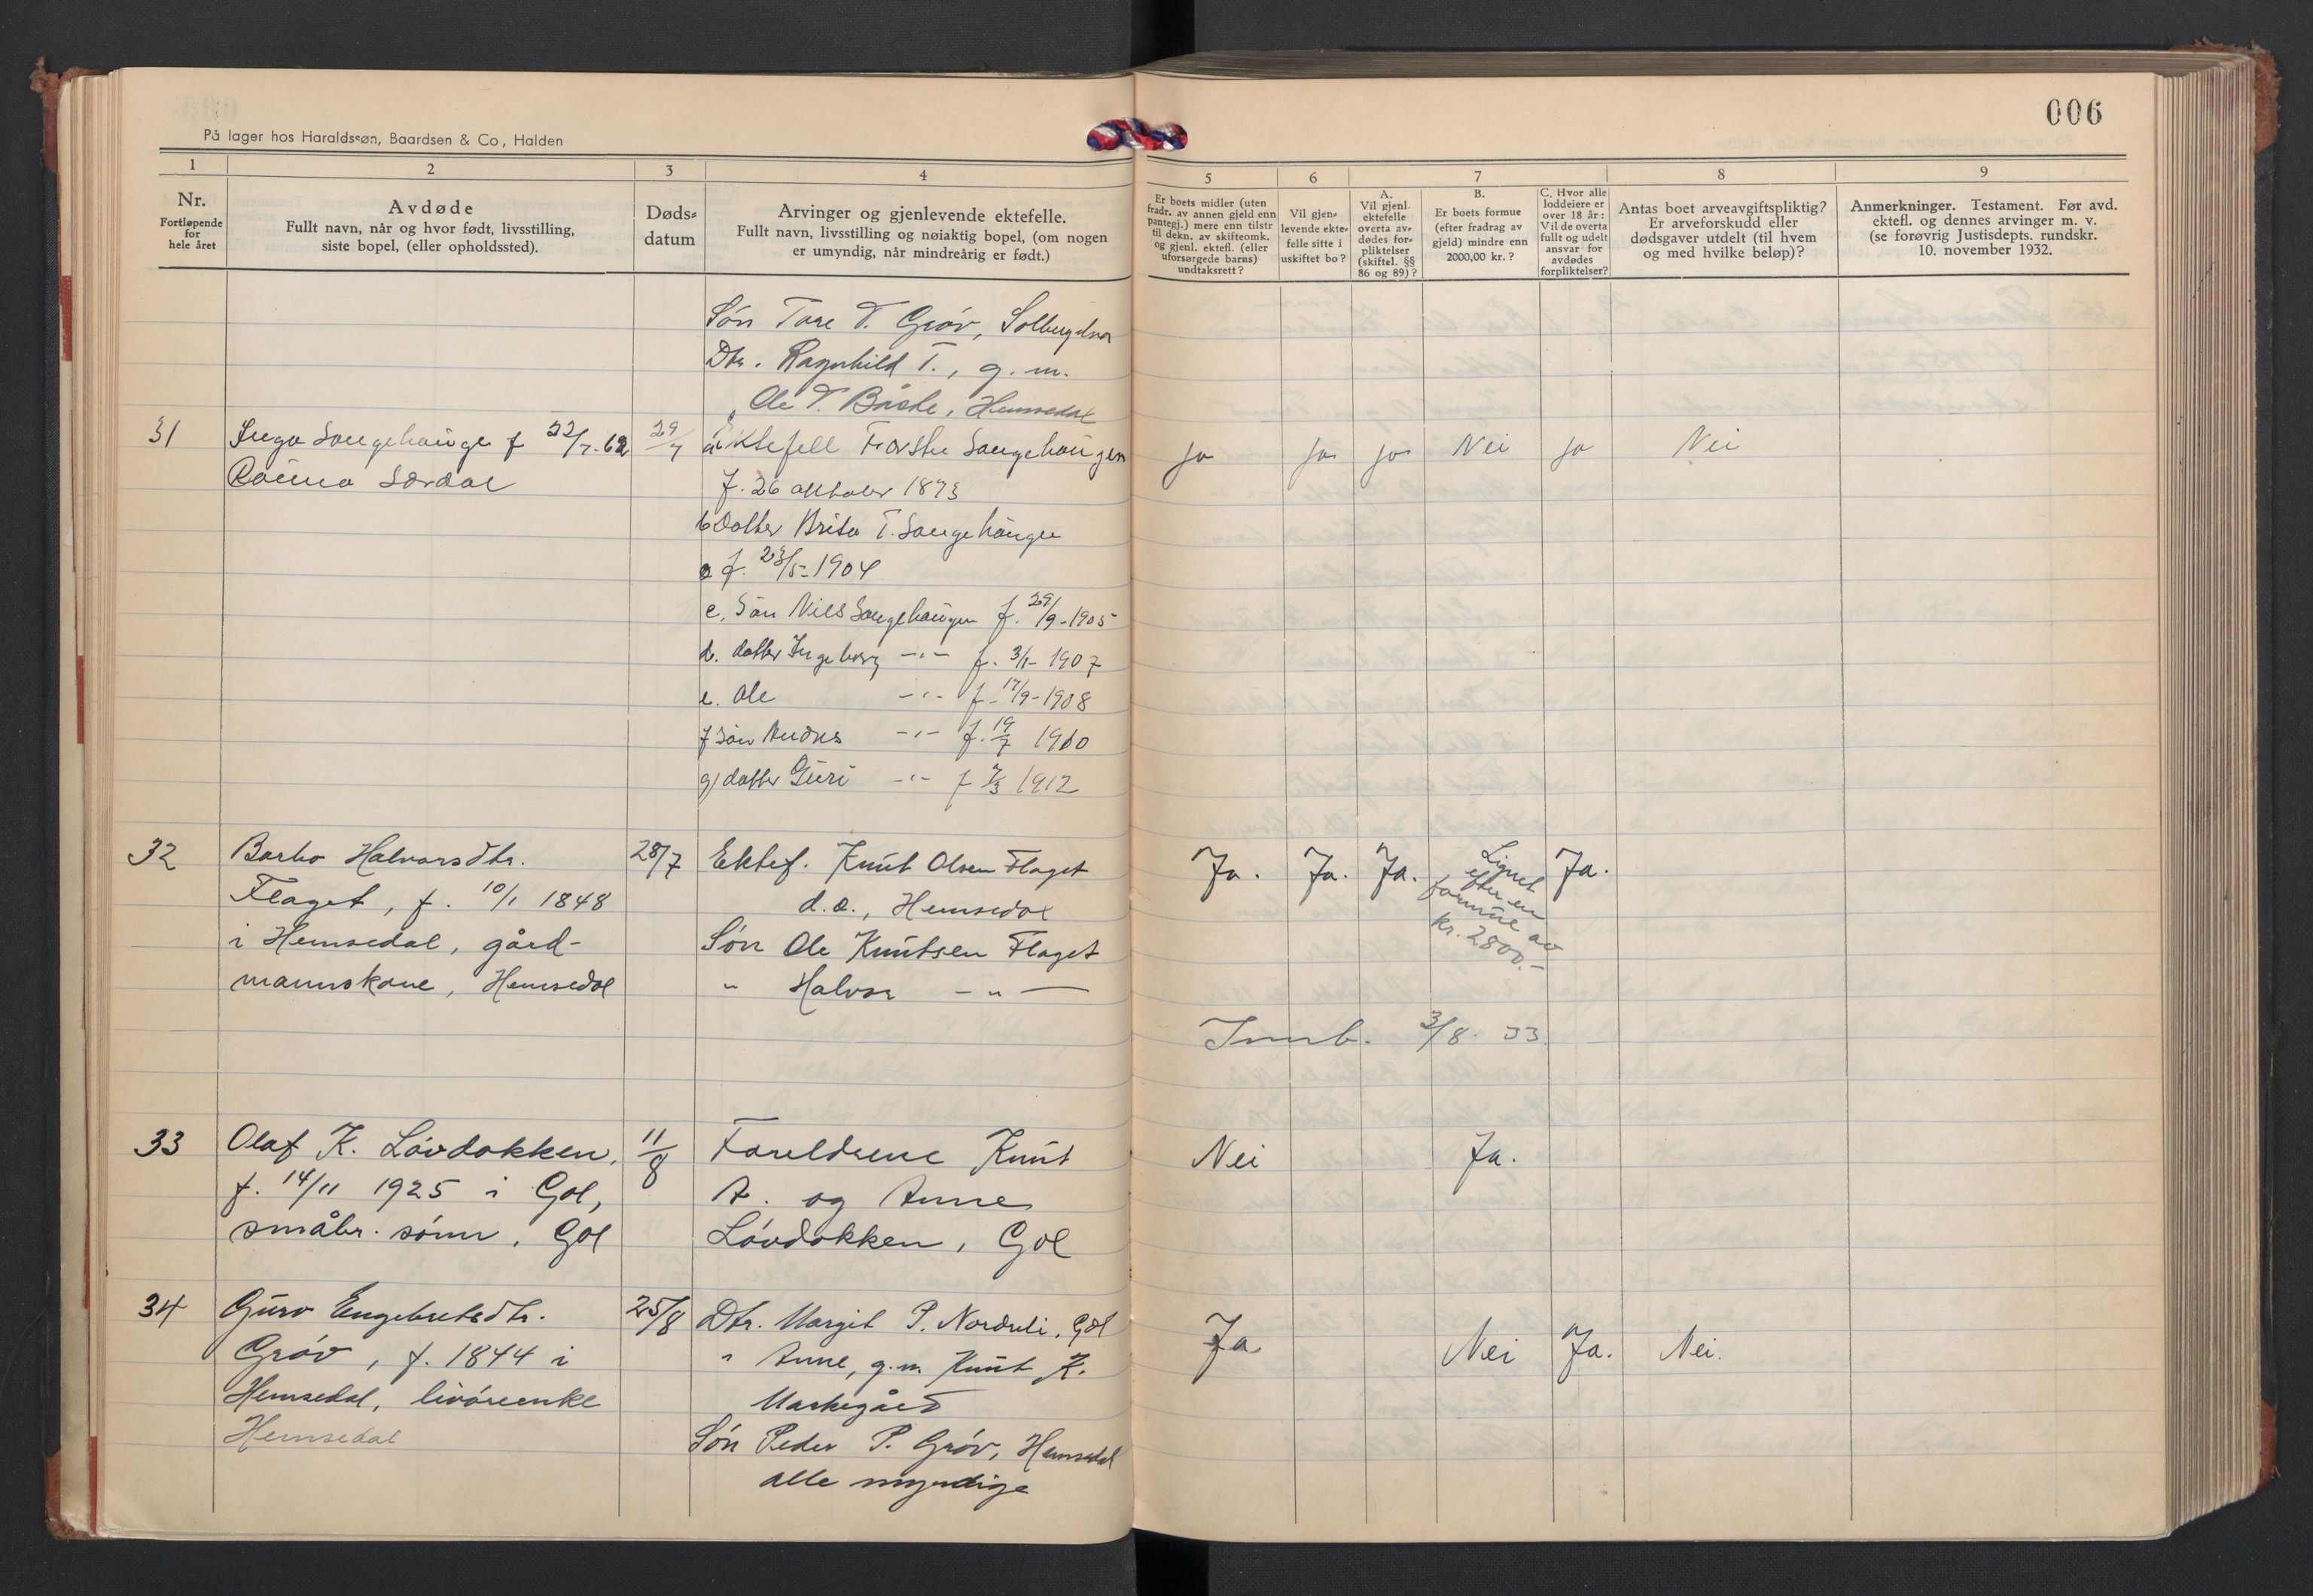 006
På lager hos Haraldssøn, Baardsen & Co, Halden
1 2 3 4 5 6 7 8 9
Nr.
Fortløpende
for
hele året
Avdøde
Fullt navn, når og hvor født, livsstilling,
siste bopel, (eller opholdssted).
Døds-
datum
Arvinger og gjenlevende ektefelle.
Fullt navn, livsstilling og nøiaktig bopel, (om nogen
er umyndig, når mindreårig er født.)
Er boets midler (uten
fradr. av annen gjeld enn
pantegj.) mere enn tilstr
til dekn. av skifteomk.
og gjenl. ektefl. (eller
uforsørgede barns)
undtaksrett?
Vil gjen-
levende ekte-
felle sitte i
uskiftet bo?
A.
Vil gjenl.
ektefelle
overta av-
dødes for-
pliktelser
(skiftel. §§
86 og 89)?
B.
Er boets formue
(efter fradrag av
gjeld) mindre enn
2000,00 kr.?
C. Hvor alle
loddeiere er
over 18 år:
Vil de overta
fullt og udelt
ansvar for
avdødes
forpliktelser?
Antas boet arveavgiftspliktig?
Er arveforskudd eller
dødsgaver utdelt (til hvem
og med hvilke beløp)?
Anmerkninger. Testament. Før avd.
ektefl. og dennes arvinger m. v.
(se forøvrig Justisdepts. rundskr.
10. november 1932.
Søn Tore T. Grøv,
Dtr. Ragnhild T., g. m.
Ole T. Hemsedal
31 Inga f 22/7-62 29/7 a Ektefell Ja Ja Ja Nei Ja Nei
f. 26 oktober 1873
b datter Brita T.
f. 23/5-1904
c. Søn Nils f. 29/9-1905
d. datter Ingeborg -"- f. 3/1-1907
e. Ole -"- f. 17/9-1908
f søn Andres -"- f. 19/7 1910
g) datter Guri -"- f 7/3 1912
32 Barbo Halvorsdtr. 28/7 Ektef. Knut Olsen Flaget Ja. Ja. Ja. Lignet Ja.
Flaget, f. 10/1 1848 d.a., Hemsedal efter en
i Hemsedal, gård- Søn Ole Knutsen Flaget formue av
mannskone, Hemsedal " Halvor -"- kr. 2800.-
Innb. 3/8. 33.
33 Olaf K. Løvdokken, 11/8 Foreldrene Knut Nei Ja.
f. 14/11 1925 i Gol, A. og Anne
småbr. sønn, Gol Løvdokken, Gol
34 Guro Engebretsdtr. 25/8 Dtr. Margit P. Nordli, Gol Ja Nei Ja. Nei.
Grøv, f. 1844 i " Anne, g.m. Knut K.
Hemsedal, livøreenke Markegård
Hemsedal Søn Peder P. Grøv, Hemsedal
alle myndige